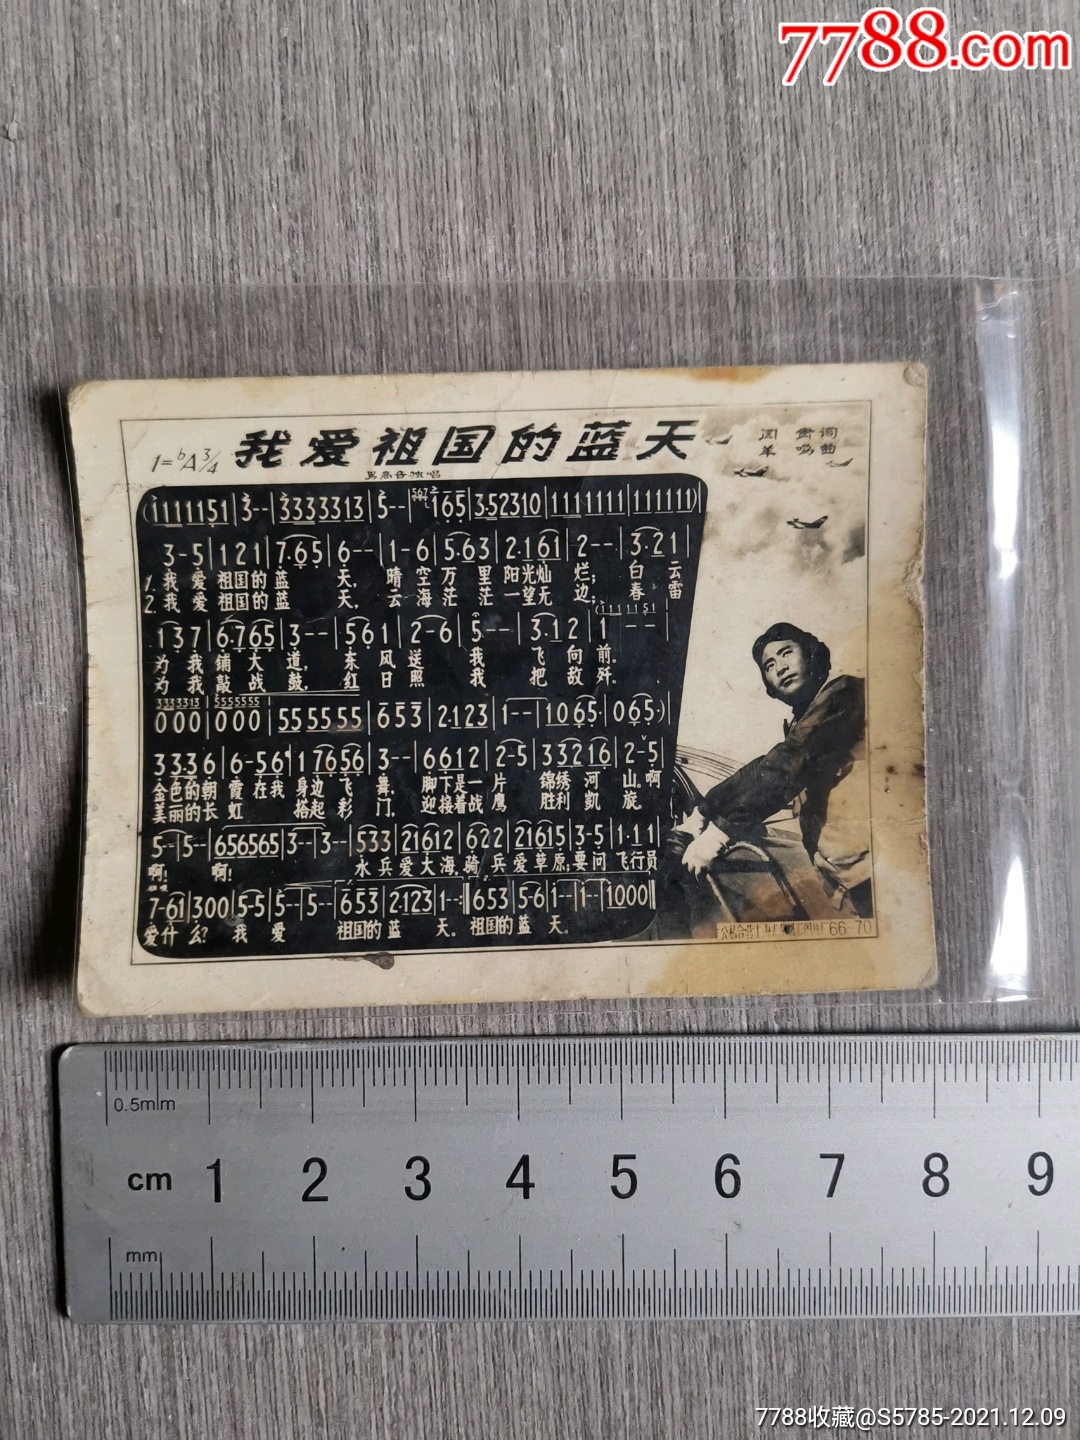 7788.com
我爱祖国的蓝天
阎肃词
羊鸣曲
1=ᵇA 3/4
男高音独唱
3-5|121|7·65|6--|1-6|5·63|2·161|2--|3·21|
1.我爱祖国的蓝天,晴空万里阳光灿烂;白云
2.我爱祖国的蓝天,云海茫茫一望无边;春雷
137|6·765|3--|561|2-6|5--|3·12|1--|
为我铺大道,东风送我飞向前。
为我敲战鼓,红日照我把敌歼。
3333313 5555555
000|000|555555|653|2·123|1--|1065·|065·)|
3336|6-56|17656|3--|6612|2-5|33216|2-5|
金色的朝霞在我身边飞舞,脚下是一片锦绣河山。啊
美丽的长虹搭起彩门,迎接着战鹰胜利凯旋。
5--|5--|656565|3--|3--|533|21612|622|21615|3-5|1·11|
啊!啊!水兵爱大海,骑兵爱草原;要问飞行员
7-61|300|5-5|5--|5--|653|2·123|1--:‖653|5-6|1--|1--|1000‖
爱什么?我爱祖国的蓝天。祖国的蓝天。
66-70
0.5mm
cm 1 2 3 4 5 6 7 8 9
mm
7788收藏@S5785-2021.12.09